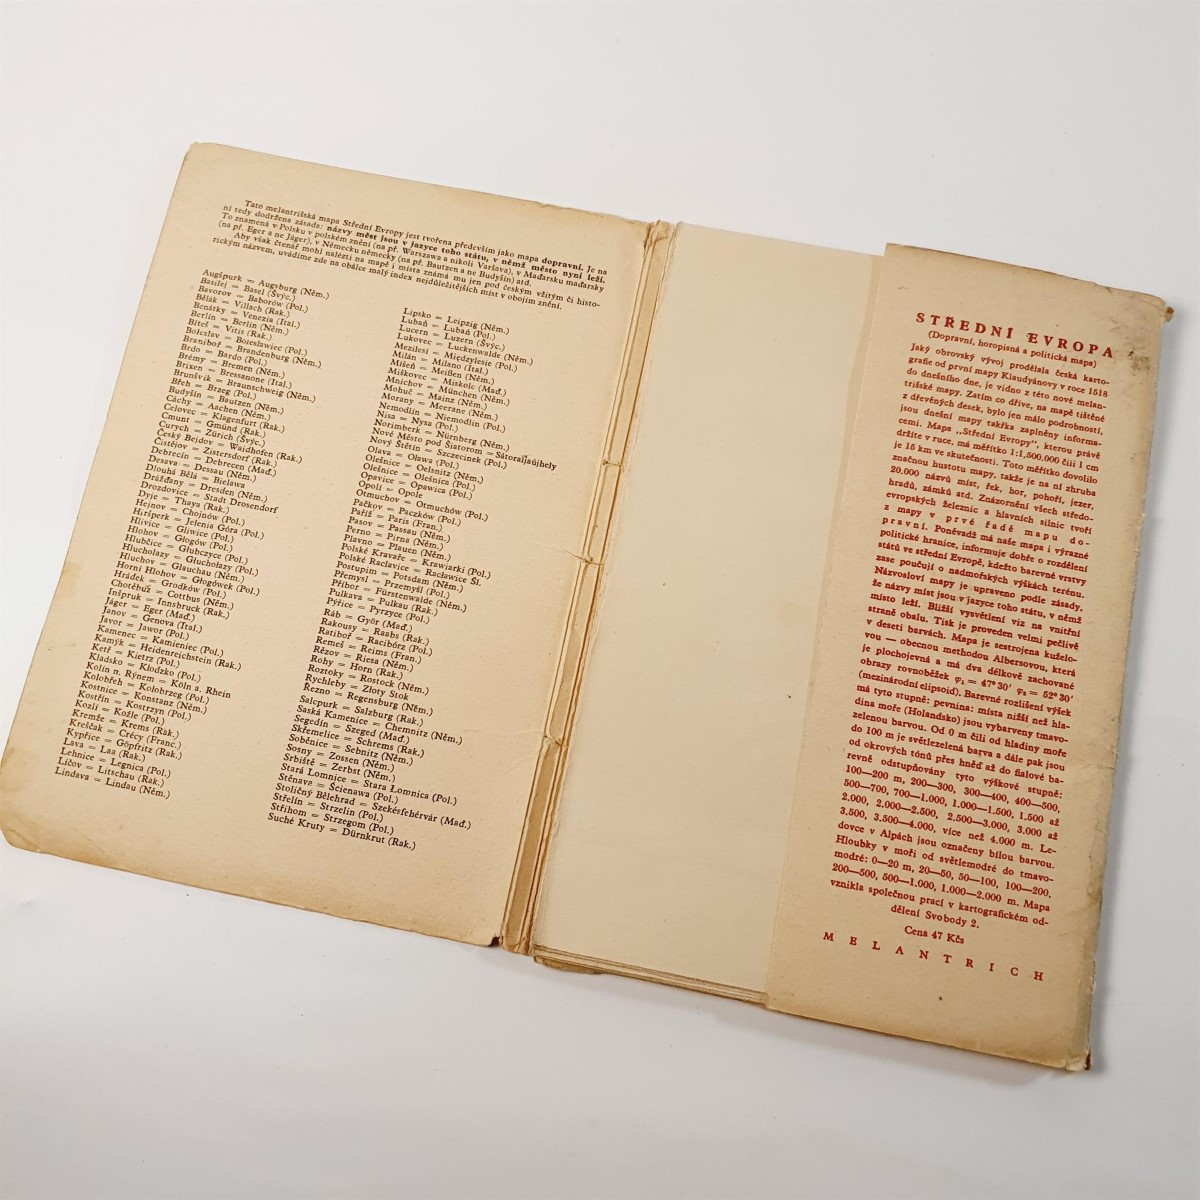 Tato melantrišská mapa Střední Evropy jest tvořena především jako mapa dopravní. Je na
ní tedy dodržena zásada: názvy měst jsou v jazyce toho státu, v němž město nyní leží.
To znamená v Polsku v polském znění (na př. Warszawa a nikoli Varšava), v Maďarsku maďarsky
(na př. Eger a ne Jáger), v Německu německy (na př. Bautzen a ne Budyšín) atd.
Aby však čtenář mohl nalézti na mapě i místa známá mu jen pod českým vžitým či histo-
rickým názvem, uvádíme zde na obálce malý index nejdůležitějších míst v obojím znění.
Augšpurk = Augsburg (Něm.)
Basilej = Basel (Švýc.)
Bavorov = Baborów (Pol.)
Bělák = Villach (Rak.)
Benátky = Venezia (Ital.)
Berlín = Berlin (Něm.)
Biteš = Vitis (Rak.)
Boleslav = Bolesławiec (Pol.)
Braniboř = Brandenburg (Něm.)
Brdo = Bardo (Pol.)
Brémy = Bremen (Něm.)
Brixen = Bressanone (Ital.)
Brunšvik = Braunschweig (Něm.)
Břeh = Brzeg (Pol.)
Budyšín = Bautzen (Něm.)
Cáchy = Aachen (Něm.)
Celovec = Klagenfurt (Rak.)
Cmunt = Gmünd (Rak.)
Curych = Zürich (Švýc.)
Český Bejdov = Waidhofen (Rak.)
Čistějov = Zistersdorf (Rak.)
Debrecín = Debrecen (Maď.)
Desava = Dessau (Něm.)
Dlouhá Bělá = Bielawa
Drážďany = Dresden (Něm.)
Drozdovice = Stadt Drosendorf
Dyje = Thaya (Rak.)
Hejnov = Chojnów (Pol.)
Hiršperk = Jelenia Góra (Pol.)
Hlivice = Gliwice (Pol.)
Hlohov = Głogów (Pol.)
Hlubčice = Głubczyce (Pol.)
Hlucholazy = Głuchołazy (Pol.)
Hluchov = Glauchau (Něm.)
Horní Hlohov = Głogówek (Pol.)
Hrádek = Grodków (Pol.)
Chotěbuz = Cottbus (Něm.)
Inšpruk = Innsbruck (Rak.)
Jáger = Eger (Maď.)
Janov = Genova (Ital.)
Javor = Jawor (Pol.)
Kamenec = Kamieniec (Pol.)
Kamýk = Heidenreichstein (Rak.)
Ketř = Kietrz (Pol.)
Kladsko = Kłodzko (Pol.)
Kolín n. Rýnem = Köln a. Rhein
Kolobřeh = Kołobrzeg (Pol.)
Kostnice = Konstanz (Něm.)
Kostřín = Kostrzyn (Pol.)
Kozlí = Koźle (Pol.)
Kremže = Krems (Rak.)
Kreščak = Crécy (Franc.)
Kypřice = Göpfritz (Rak.)
Lava = Laa (Rak.)
Lehnice = Legnica (Pol.)
Líčov = Litschau (Rak.)
Lindava = Lindau (Něm.)
Lipsko = Leipzig (Něm.)
Lubaň = Lubań (Pol.)
Lucern = Luzern (Švýc.)
Lukovec = Luckenwalde (Něm.)
Mezilesí = Międzylesie (Pol.)
Milán = Milano (Ital.)
Míšeň = Meißen (Něm.)
Miškovec = Miskolc (Maď.)
Mnichov = München (Něm.)
Mohuč = Mainz (Něm.)
Morany = Meerane (Něm.)
Nemodlín = Niemodlin (Pol.)
Nisa = Nysa (Pol.)
Norimberk = Nürnberg (Něm.)
Nové Město pod Šiatorom = Sátoraljaújhely
Nový Štětín = Szczecinek (Pol.)
Olava = Oława (Pol.)
Olešnice = Oelsnitz (Něm.)
Olešnice = Oleśnica (Pol.)
Opavice = Opawica (Pol.)
Opolí = Opole
Otmuchov = Otmuchów (Pol.)
Pačkov = Paczków (Pol.)
Paříž = Paris (Fran.)
Pasov = Passau (Něm.)
Perno = Pirna (Něm.)
Plavno = Plauen (Něm.)
Polské Kravaře = Krawjarki (Pol.)
Polské Raclavice = Racławice Śl.
Postupim = Potsdam (Něm.)
Přemyšl = Przemyśl (Pol.)
Příbor = Fürstenwalde (Něm.)
Pulkava = Pulkau (Rak.)
Pýřice = Pyrzyce (Pol.)
Ráb = Győr (Maď.)
Rakousy = Raabs (Rak.)
Ratiboř = Racibórz (Pol.)
Remeš = Reims (Fran.)
Rězov = Riesa (Něm.)
Rohy = Horn (Rak.)
Roztoky = Rostock (Něm.)
Rychleby = Złoty Stok
Řezno = Regensburg (Něm.)
Salcpurk = Salzburg (Rak.)
Saská Kamenice = Chemnitz (Něm.)
Segedín = Szeged (Maď.)
Skřemelice = Schrems (Rak.)
Soběnice = Sebnitz (Něm.)
Sosny = Zossen (Něm.)
Srbiště = Zerbst (Něm.)
Stará Lomnice = Stara Łomnica (Pol.)
Stěnava = Ścienawa (Pol.)
Stoličný Bělehrad = Székesfehérvár (Maď.)
Střelín = Strzelin (Pol.)
Střihom = Strzegom (Pol.)
Suché Kruty = Dürnkrut (Rak.)
STŘEDNÍ EVROPA
(Dopravní, horopisná a politická mapa)
Jaký obrovský vývoj prodělala česká karto-
grafie od první mapy Klaudyánovy v roce 1518
do dnešního dne, je vidno z této nové melan-
trišské mapy. Zatím co dříve, na mapě tištěné
z dřevěných desek, bylo jen málo podrobností,
jsou dnešní mapy takřka zaplněny informa-
cemi. Mapa „Střední Evropy“, kterou právě
držíte v ruce, má měřítko 1:1,500.000 čili 1 cm
je 15 km ve skutečnosti. Toto měřítko dovolilo
značnou hustotu mapy, takže je na ní zhruba
20.000 názvů míst, řek, hor, pohoří, jezer,
hradů, zámků atd. Znázornění všech středo-
evropských železnic a hlavních silnic tvoří
z mapy v prvé řadě mapu do-
pravní. Poněvadž má naše mapa i výrazné
politické hranice, informuje dobře o rozdělení
států ve střední Evropě, kdežto barevné vrstvy
zase poučují o nadmořských výškách terénu.
Názvosloví mapy je upraveno podle zásady,
že názvy míst jsou v jazyce toho státu, v němž
místo leží. Bližší vysvětlení viz na vnitřní
straně obalu. Tisk je proveden velmi pečlivě
v deseti barvách. Mapa je sestrojena kuželo-
vou — obecnou methodou Albersovou, která
je plochojevná a má dva délkově zachované
obrazy rovnoběžek φ₁ = 47° 30′ φ₁ = 52° 30′
(mezinárodní elipsoid). Barevné rozlišení výšek
má tyto stupně: pevnina: místa nižší než hla-
dina moře (Holandsko) jsou vybarveny tmavo-
zelenou barvou. Od 0 m čili od hladiny moře
do 100 m je světlezelená barva a dále pak jsou
od okrových tónů přes hněď až do fialové ba-
revně odstupňovány tyto výškové stupně:
100—200 m, 200—300, 300—400, 400—500,
500—700, 700—1.000, 1.000—1.500, 1.500 až
2.000, 2.000—2.500, 2.500—3.000, 3.000 až
3.500, 3.500—4.000, více než 4.000 m. Le-
dovce v Alpách jsou označeny bílou barvou.
Hloubky v moři od světlemodré do tmavo-
modré: 0—20 m, 20—50, 50—100, 100—200,
200—500, 500—1.000, 1.000—2.000 m. Mapa
vznikla společnou prací v kartografickém od-
dělení Svobody 2.
Cena 47 Kčs
MELANTRICH